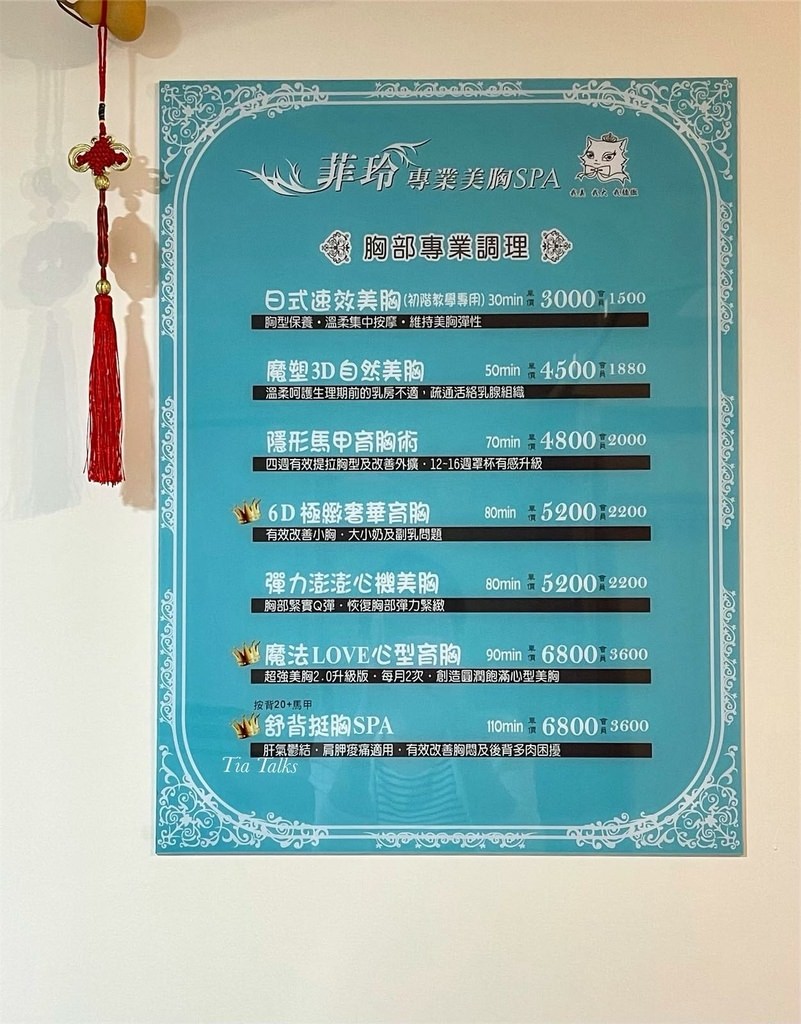 菲玲 專業美胸SPA
我美 我大 我驕傲
胸部專業調理
日式速效美胸(初階教學專用) 30min 單價 3000 會員 1500
胸型保養·溫柔集中按摩·維持美胸彈性
魔塑3D自然美胸 50min 單價 4500 會員 1880
溫柔呵護生理期前的乳房不適，疏通活絡乳腺組織
隱形馬甲育胸術 70min 單價 4800 會員 2000
四週有效提拉胸型及改善外擴·12-16週罩杯有感升級
6D極緻奢華育胸 80min 單價 5200 會員 2200
有效改善小胸·大小奶及副乳問題
彈力澎澎心機美胸 80min 單價 5200 會員 2200
胸部緊實Q彈·恢復胸部彈力緊緻
魔法LOVE心型育胸 90min 單價 6800 會員 3600
超強美胸2.0升級版·每月2次·創造圓潤飽滿心型美胸
按背20+馬甲
舒背挺胸SPA 110min 單價 6800 會員 3600
肝氣鬱結·肩胛痠痛適用·有效改善胸悶及後背多肉困擾
Tia Talks